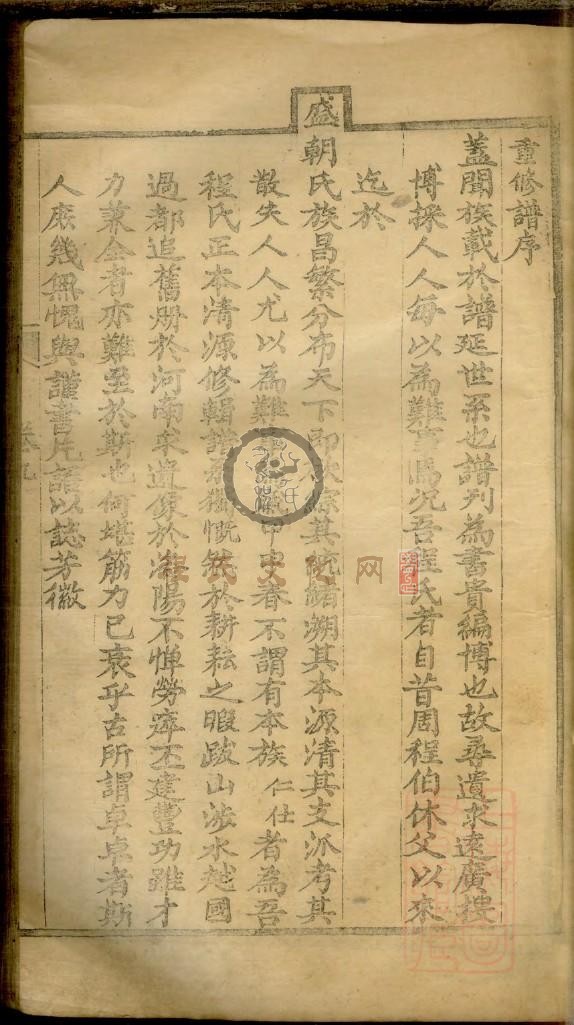 重修譜序
蓋聞族載於譜延世系也譜刊為書貴編博也故尋遺求遠廣搜
博採人人每以為難事焉況吾程氏者自昔周程伯休父以來
迄於
盛朝氏族昌繁分布天下即欲綜其統緒溯其本源清其支派考其
散失人人尤以為難 申春不謂有本族仁仕者為吾
程氏正本清源修輯譜系獨慨然於耕耘之暇跋山涉水越國
過都追舊册於河南采遺像於洛陽不憚勞瘁丕建豐功雖才
力兼全者亦難至於斯也何堪筋力已衰乎古所謂卓卓者斯
人庶幾無愧與謹書片語以誌芳徽
卷九
程氏文化网